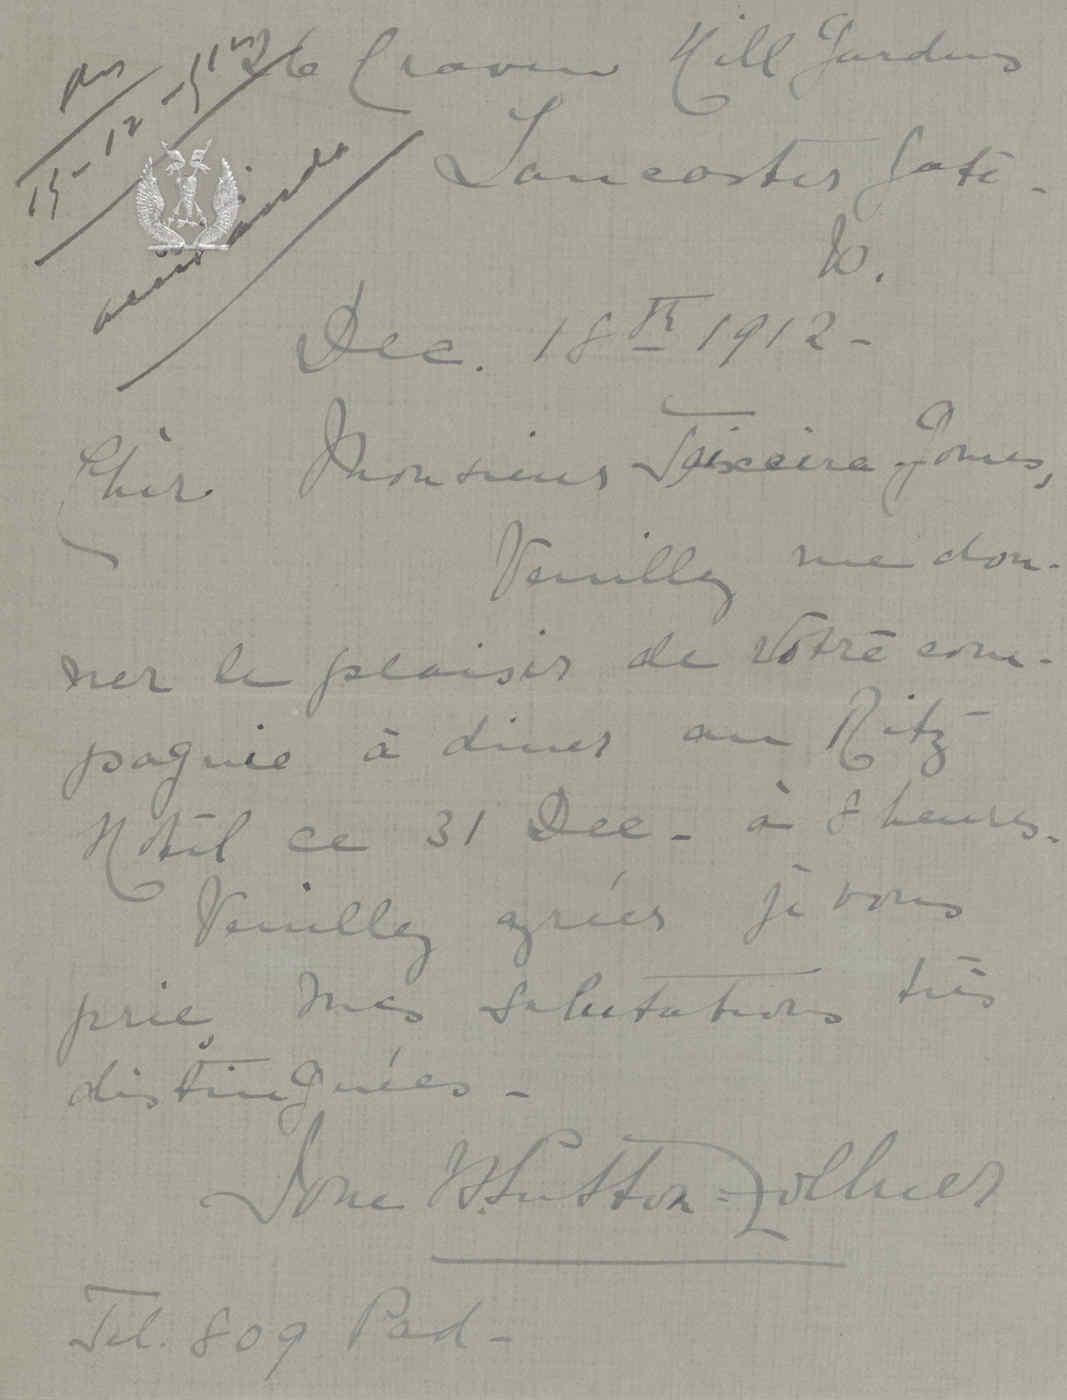 26 Craven Hill Gardens
Lancaster Gate -
W.
Dec. 18th 1912 -
Cher Monsieur Teixeira Gomes,
Veuillez me don-
ner le plaisir de votre com-
pagnie à diner au Ritz
Hotel ce 31 Dec - à 8 heures.
Veuillez agréer je vous
prie, mes salutations très
distinguées -
W. Sutton-Zollner
Tel. 809 Pad -
15-12-